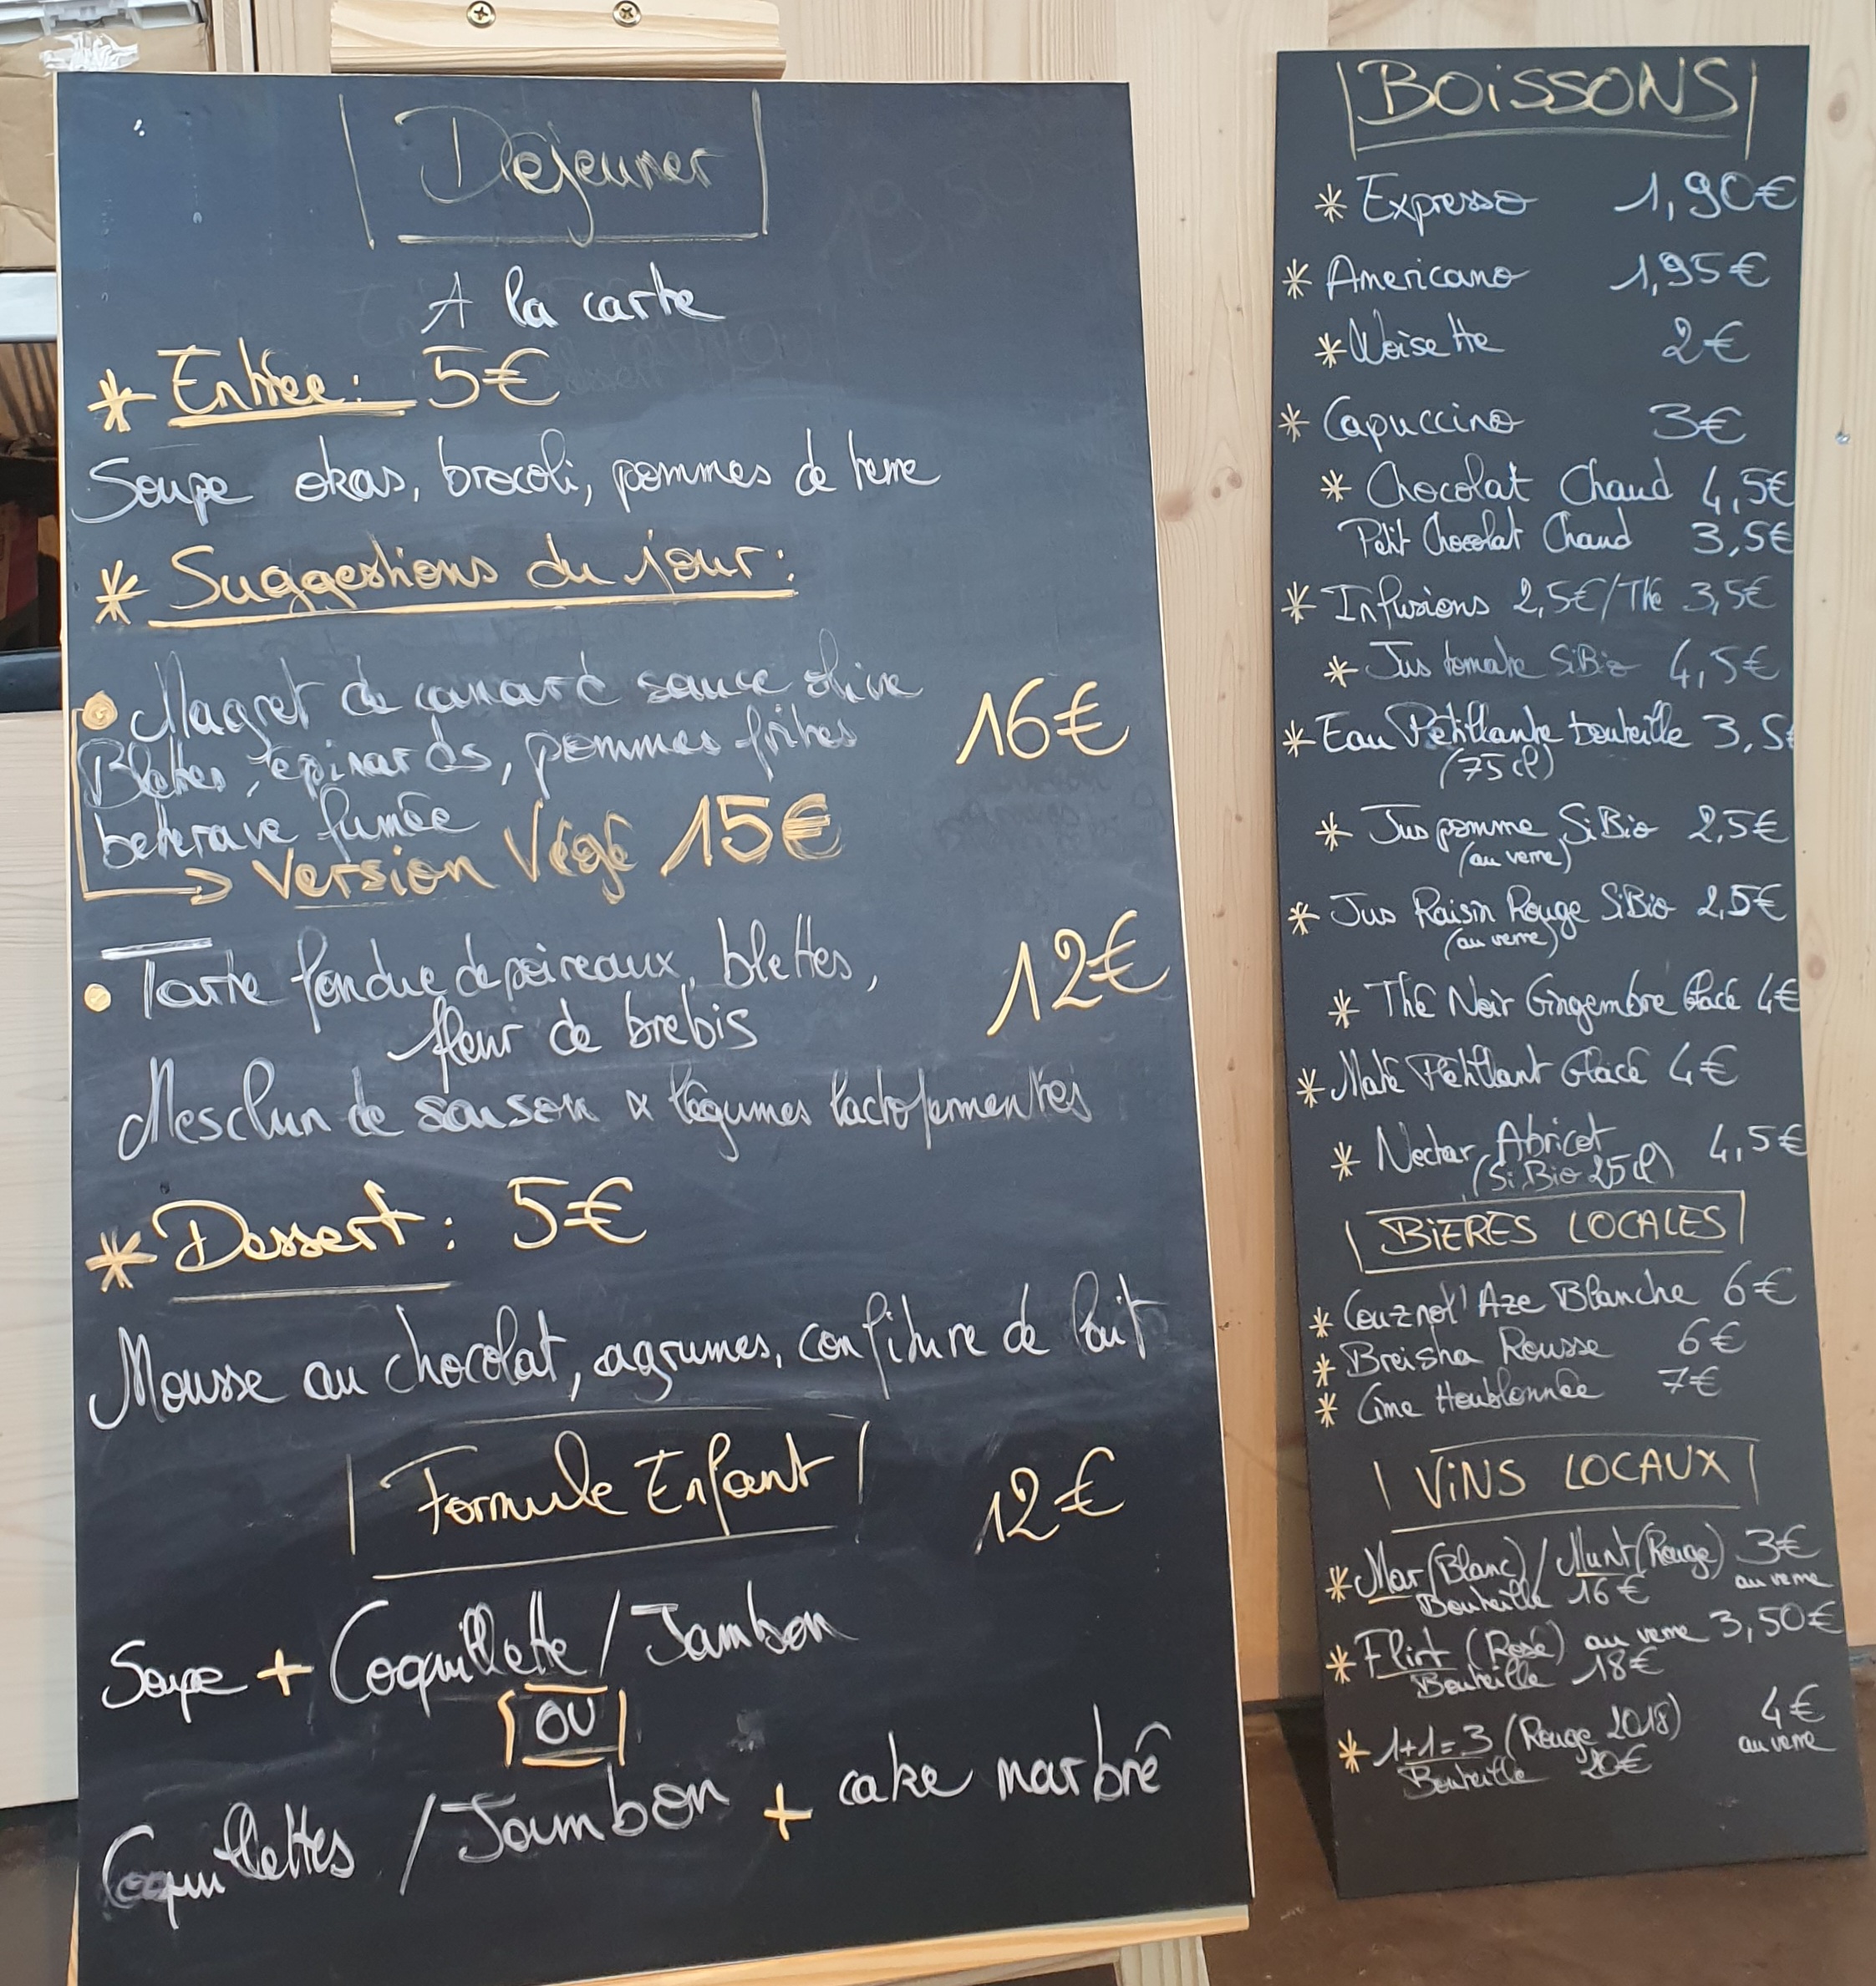 Déjeuner
A la carte
* Entrée : 5€
Soupe okas, brocoli, pommes de terre
* Suggestions du jour :
• Magret de canard sauce olive
Blettes, épinards, pommes frites
16€
betterave fumée
Version Végé 15€
• Tarte fondue de poireaux, blettes,
fleur de brebis
12€
Mesclun de saison & légumes lactofermentés
* Dessert : 5€
Mousse au chocolat, agrumes, confiture de lait
Formule Enfant 12€
Soupe + Coquillette / Jambon
OU
Coquillettes / Jambon + cake marbré
BOISSONS
* Expresso 1,90€
* Americano 1,95€
* Noisette 2€
* Capuccino 3€
* Chocolat Chaud 4,5€
Petit Chocolat Chaud 3,5€
* Infusions 2,5€/Thé 3,5€
* Jus tomate SiBio 4,5€
* Eau Pétillante bouteille 3,5€
(75cl)
* Jus pomme SiBio 2,5€
(au verre)
* Jus Raisin Rouge SiBio 2,5€
(au verre)
* Thé Noir Gingembre Glacé 4€
* Maté Pétillant Glacé 4€
* Nectar Abricot 4,5€
(SiBio 25cl)
BIERES LOCALES
* Couznot' Aze Blanche 6€
* Breisha Rousse 6€
* Cime Houblonnée 7€
VINS LOCAUX
* Mar (Blanc) / Munt (Rouge) 3€
Bouteille 16€ au verre
* Flirt (Rosé) au verre 3,50€
Bouteille 18€
* 1+1=3 (Rouge 2018) 4€
Bouteille 20€ au verre